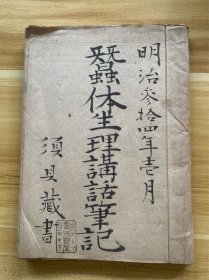 明治参拾四年壱月
蚕体生理講話筆記
須貝蔵書